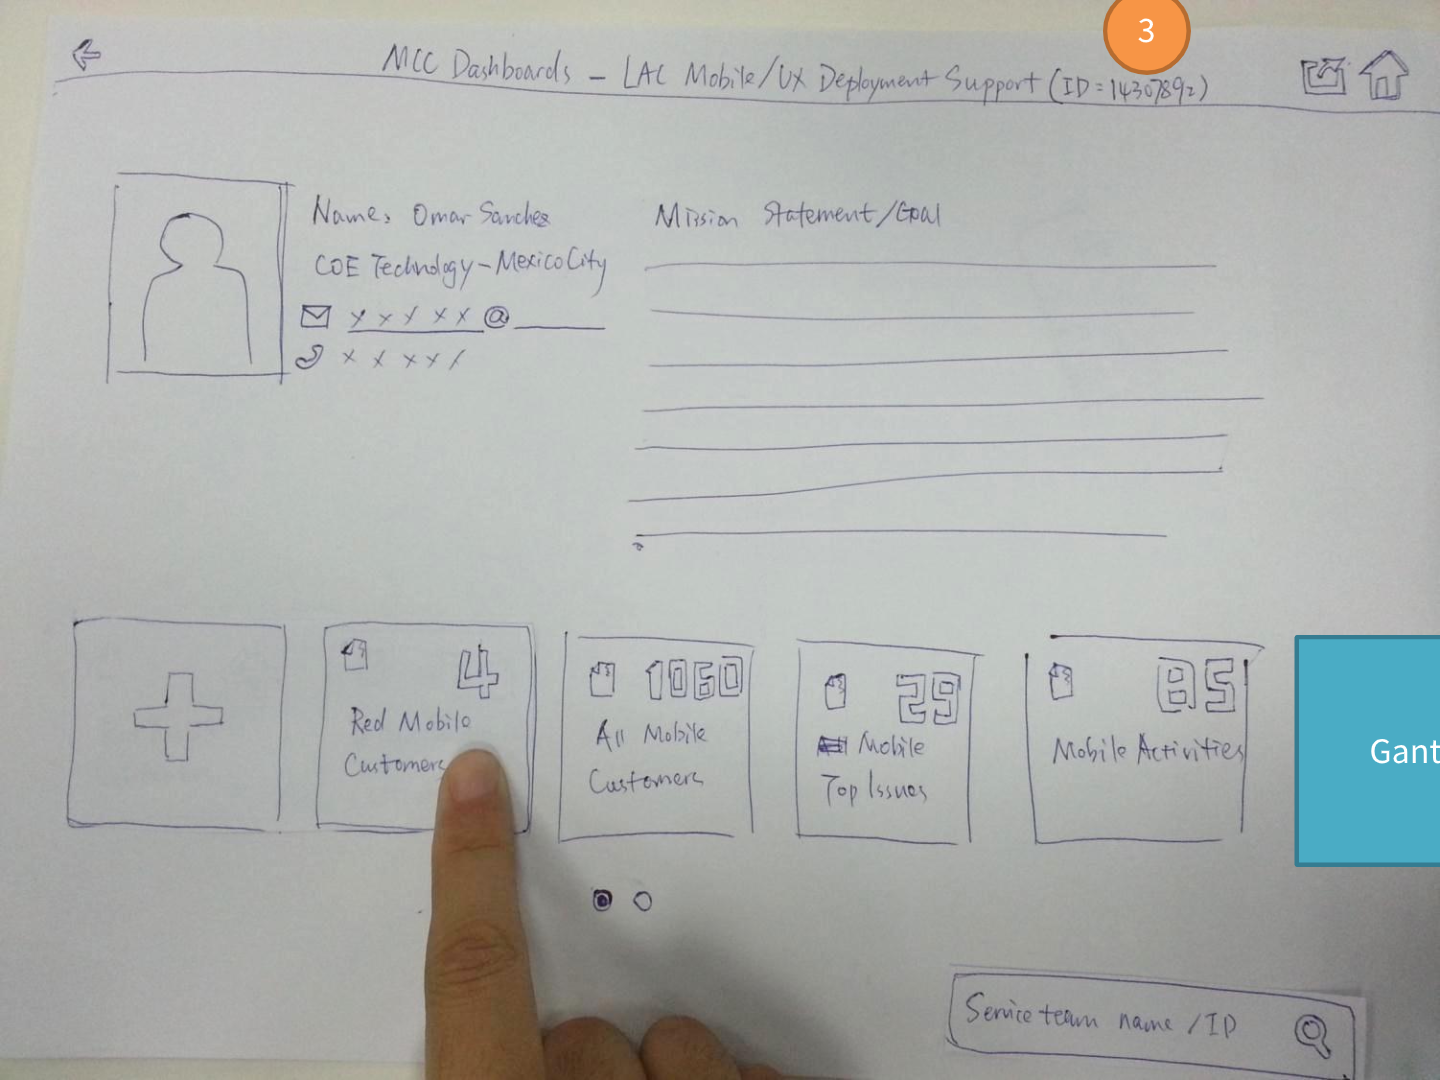 3
MCC Dashboards - LAC Mobile/UX Deployment Support (ID=14307892)
Name: Omar Sanchez
COE Technology - Mexico City
x x x x x @
x x x x x
Mission Statement/Goal
4
Red Mobile
Customers
1060
All Mobile
Customers
29
Mobile
Top Issues
85
Mobile Activities
Gant
Service team name / ID